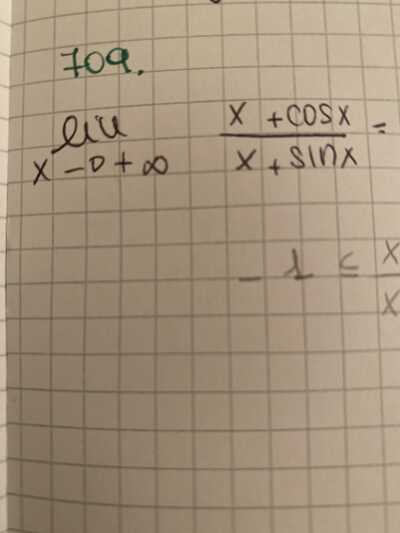 709.
lim x + cosx =
x → + ∞ x + sinx
- 1 ≤ x
x